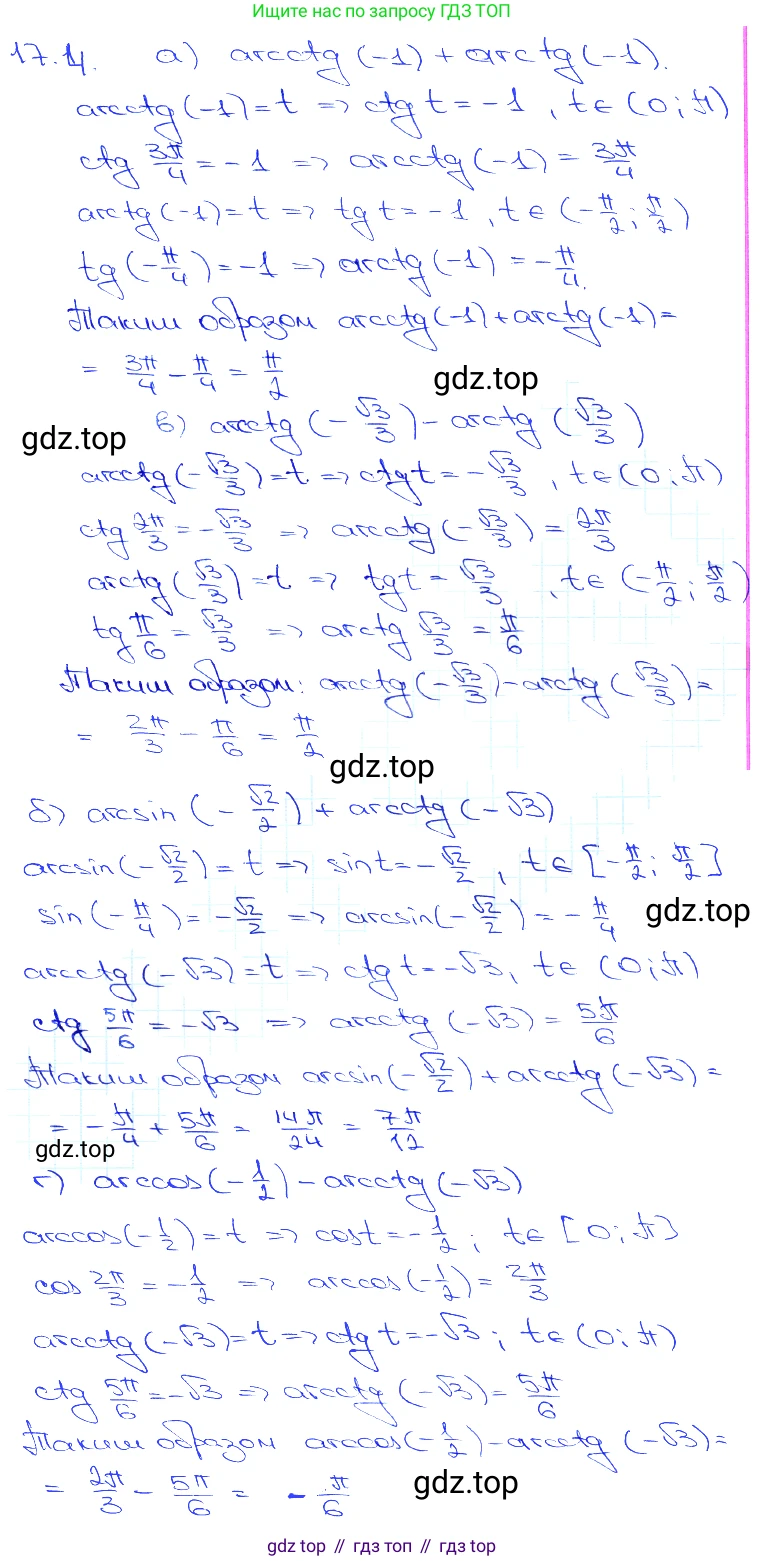 Ищите нас по запросу ГДЗ ТОП
17.4. а) arcctg(-1) + arctg(-1).
arcctg(-1) = t => ctg t = -1, t ∈ (0; π)
ctg 3π/4 = -1 => arcctg(-1) = 3π/4
arctg(-1) = t => tg t = -1, t ∈ (-π/2; π/2)
tg(-π/4) = -1 => arctg(-1) = -π/4.
Таким образом arcctg(-1) + arctg(-1) =
= 3π/4 - π/4 = π/2
gdz.top
в) arcctg(-√3/3) - arctg(√3/3)
gdz.top
arcctg(-√3/3) = t => ctg t = -√3/3, t ∈ (0; π)
ctg 2π/3 = -√3/3 => arcctg(-√3/3) = 2π/3
arctg(√3/3) = t => tg t = √3/3, t ∈ (-π/2; π/2)
tg π/6 = √3/3 => arctg √3/3 = π/6
Таким образом: arcctg(-√3/3) - arctg(√3/3) =
= 2π/3 - π/6 = π/2
gdz.top
б) arcsin(-√2/2) + arcctg(-√3)
arcsin(-√2/2) = t => sin t = -√2/2, t ∈ [-π/2; π/2]
sin(-π/4) = -√2/2 => arcsin(-√2/2) = -π/4
gdz.top
arcctg(-√3) = t => ctg t = -√3, t ∈ (0; π)
ctg 5π/6 = -√3 => arcctg(-√3) = 5π/6
Таким образом arcsin(-√2/2) + arcctg(-√3) =
= -π/4 + 5π/6 = 14π/24 = 7π/12
gdz.top
г) arccos(-1/2) - arcctg(-√3)
arccos(-1/2) = t => cos t = -1/2; t ∈ [0; π]
cos 2π/3 = -1/2 => arccos(-1/2) = 2π/3
arcctg(-√3) = t => ctg t = -√3; t ∈ (0; π)
ctg 5π/6 = -√3 => arcctg(-√3) = 5π/6
Таким образом arccos(-1/2) - arcctg(-√3) =
= 2π/3 - 5π/6 = -π/6
gdz.top
gdz top // гдз топ // gdz top